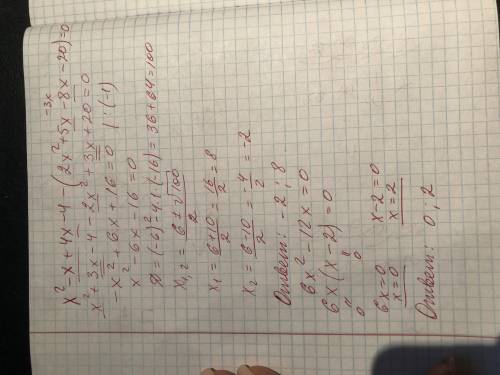 x² - x + 4x - 4 - (2x² + 5x - 8x - 20) = 0
-3x
x² + 3x - 4 - 2x² + 3x + 20 = 0
-x² + 6x + 16 = 0 | : (-1)
x² - 6x - 16 = 0
D = (-6)² - 4·1·(-16) = 36 + 64 = 100
x₁,₂ = (6 ± √100)/2
x₁ = (6+10)/2 = 16/2 = 8
x₂ = (6-10)/2 = -4/2 = -2
Ответ: -2; 8
6x² - 12x = 0
6x(x - 2) = 0
" "
0 0
6x = 0 x - 2 = 0
x = 0 x = 2
Ответ: 0; 2